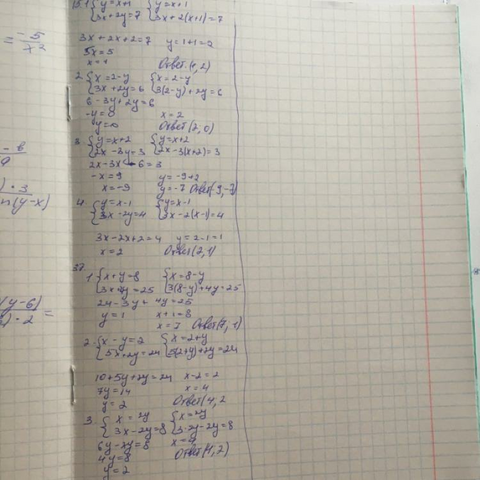 15.1 { y=x+1 { y=x+1
3x+2y=7 3x+2(x+1)=7
3x+2x+2=7 y=1+1=2
5x=5
x=1 Ответ(1,2)
2. { x=2-y { x=2-y
3x+2y=6 3(2-y)+2y=6
6-3y+2y=6
-y=0 x=2
y=0 Ответ(2,0)
3. { y=x+2 { y=x+2
2x-3y=3 2x-3(x+2)=3
2x-3x-6=3
-x=9 y=-9+2
x=-9 y=-7 Ответ(-9,-7)
4. { y=x-1 { y=x-1
3x-2y=4 3x-2(x-1)=4
3x-2x+2=4 y=2-1=1
x=2 Ответ(2,1)
1. { x+y=8 { x=8-y
3x+4y=25 3(8-y)+4y=25
24-3y+4y=25
y=1 x+1=8
x=7 Ответ(7,1)
2. { x-y=2 { x=2+y
5x+2y=24 5(2+y)+2y=24
10+5y+2y=24 x-2=2
7y=14 x=4
y=2 Ответ(4,2
3. { x=2y { x=2y
3x-2y=8 3·2y-2y=8
6y-2y=8 x=4
4y=8 Ответ(4,2)
y=2
= -5
x²
- в
) · 3
(y-x)
(y-6)
) · 2 =